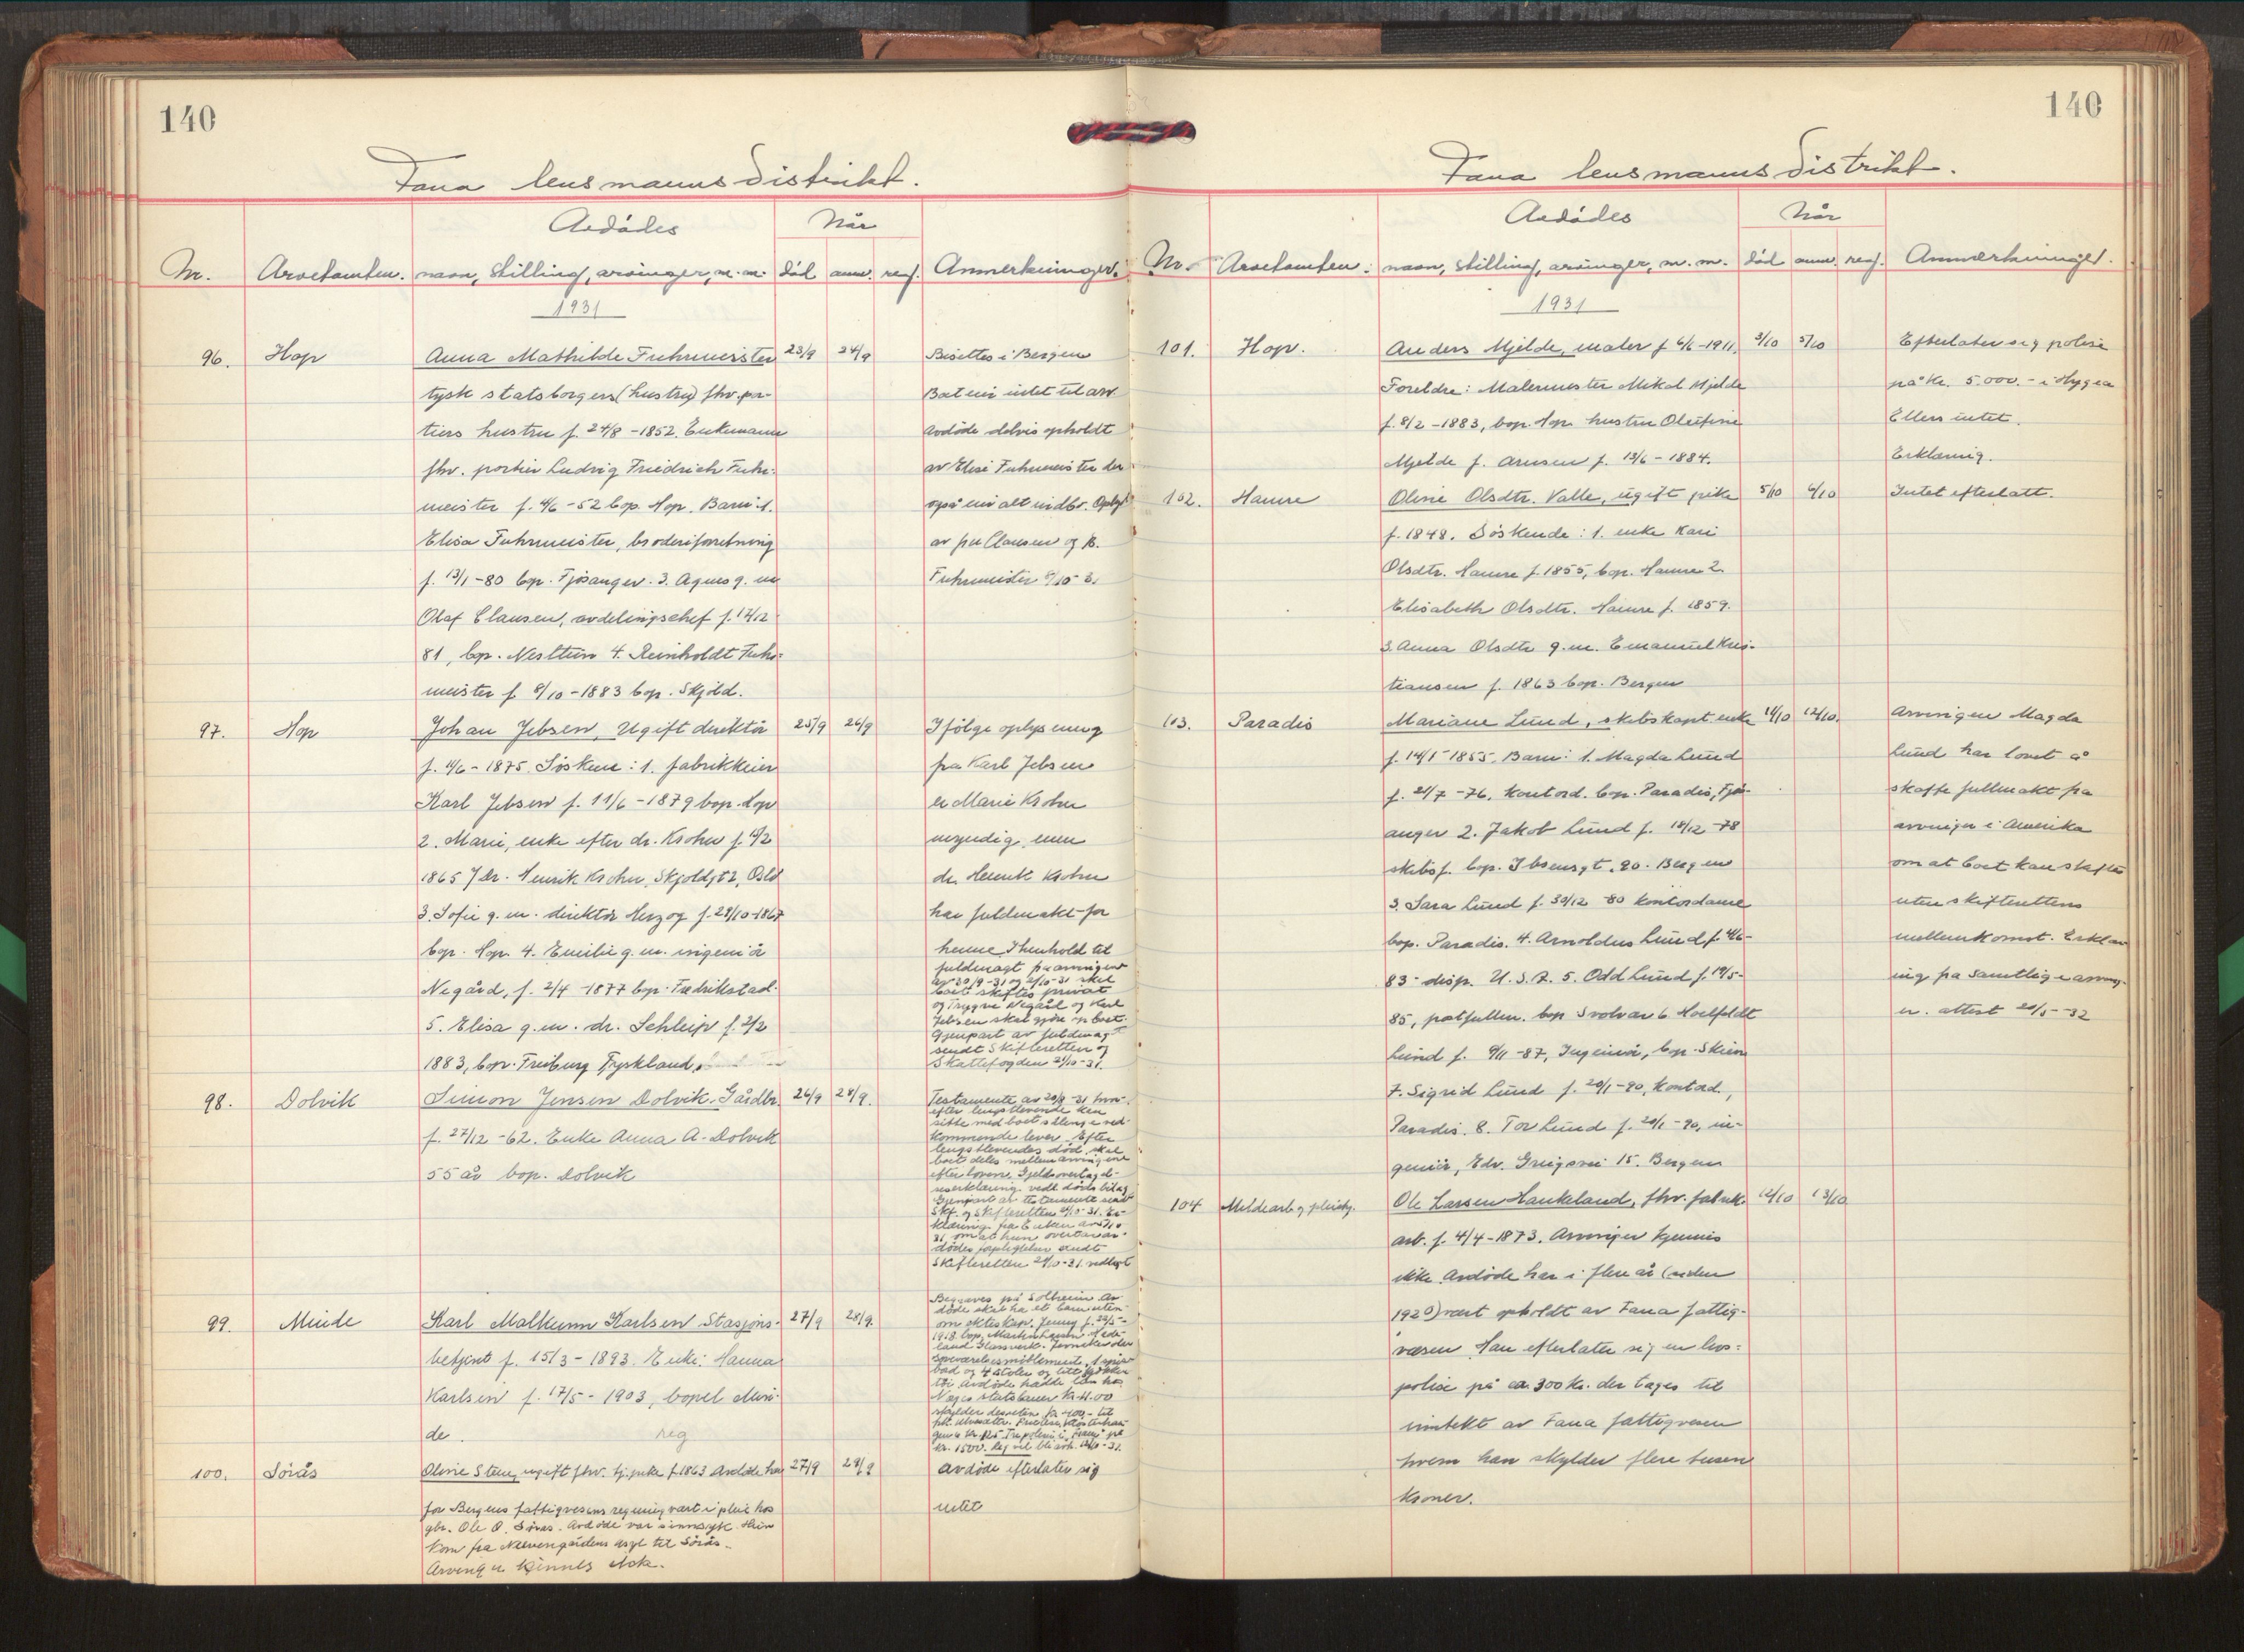 140
Fana lensmannsdistrikt.
Avdödes
Når
Nr. Arvetomten. navn, stilling, arvinger, m.m. död anm. reg. Anmerkninger.
1931
96. Hop Anna Mathilde Fuhrmeister 23/9 24/9 Bisettes i Bergen
tysk statsborger (hustru) fhv. por- Boet eier intet til arv
tiers hustru f. 24/8 - 1852. Enkemann Avdöde delvis opholdt
fhv. portier Ludvig Friedrich Fuhr- av Elise Fuhrmeister der
meister f. 4/6 - 52 bop. Hop. Barn: 1. også eier alt indbo. Oplyst
Elisa Fuhrmeister, broderiforretning av fru Clausen og R.
f. 13/1 - 80 bop. Fjösanger. 3. Agnes g. m. Fuhrmeister 9/10-31
Olaf Clausen, avdelingschef f. 17/12
81, bop. Nesttun 4. Reinholdt Fuhr-
meister f. 8/10 - 1883 bop. Skjold.
97. Hop Johan Jebsen, Ugift direktör 25/9 26/9 Ifölge oplysning
f. 4/6 - 1875. Sösken: 1. fabrikkeier fra Karl Jebsen
Karl Jebsen f. 11/6 - 1879 bop. Hop er Marie Krohn
2. Marie, enke efter dr. Krohn f. /2 umyndig, men
1865 / Dr. Henrik Krohn, Skjoldgt 2, Oslo dr. Henrik Krohn
3. Sofie g. m. direktör Herzog f. 29/10-1867 har fuldmakt for
bop. Hop. 4. Emilie g. m. ingeniör henne. I henhold til
fuldmagt fra arvingene
Negård, f. 2/4 - 1877 bop. Fredrikstad. av 30/9-31 og 2/10-31 skal
boet skiftes privat
og Trygve Negård og Karl
5. Elisa g. m. dr. Schleip f. 2/2 Jebsen skal gjöre op boet.
Gjenpart av fuldmagt
sendt Skifteretten og
1883, bop. Freiburg Tyskland. Skattefogden 21/10-31.
98. Dolvik Simon Jensen Dolvik. Gårdbr. 26/9 28/9. Testamente av 20/9-31 hvor-
efter lengstlevende kan
sitte med boet sålenge ved-
f. 27/12 - 62. Enke Anna A. Dolvik kommende lever. Efter
lengstlevendes död skal
boet deles mellem arvingene
55 år bop. Dolvik efter loven. Gjeldsovertagel-
seserklæring vedl. döds bilag
Gjenpart av testamente sendt
Skf. og skifteretten /10-31. Er-
klæring fra Enken av /10
31 om at hun overtar av-
dödes forpligtelser sendt
Skifteretten 21/10-31 vedlagt
99. Minde Karl Malkum Karlsen Stasjons- 27/9 28/9. Begraves på Solheim. Av-
döde skal ha et barn uten-
om ekteskap. Jenny f. 29/5-
1918 bop.
betjent f. 15/3 - 1893. Enke: Hanna
Karlsen f. 17/5 - 1903, bopel Min-
de. reg
kr. 1500. 12/10-31.
100. Sörås Oline Steen, ugift fhv. tj. pike f. 1863 Avdöde har 27/9 28/9 Avdöde efterlater sig
for Bergens fattigvesens regning vært i pleie hos intet
gbr. Ole O. Sörås. Avdöde var sinnsyk. Hun
kom fra Neevengårdens asyl til Sörås.
Arvinger kjennes ikke.
140
Fana lensmannsdistrikt.
Avdödes
Når
Nr. Arvetomten: navn, stilling, arvinger, m.m. död anm. reg. Anmerkninger.
1931
101. Hop. Anders Mjelde, maler f 6/6 - 1911. 3/10 5/10 Efterlater sig polise
Foreldre: Malermester Mikal Mjelde på kr. 5.000.- i Hygea
f. 8/2 - 1883, bop. Hop. hustru Olufine Ellers intet.
Mjelde f. Arnesen f. 13/6 - 1884. Erklæring.
102. Hamre Oline Olsdtr. Valle, ugift pike 5/10 6/10 Intet efterlatt.
f. 1848. Söskende: 1. enke Kari
Olsdtr. Hamre f. 1855, bop. Hamre 2.
Elisabeth Olsdtr. Hamre f. 1859.
3. Anna Olsdtr g. m. Emanuel Kris-
tiansen f. 1863 bop. Bergen
103. Paradis Mariane Lund, skibskapt. enke 11/10 12/10. Arvingen Magda
f. 14/1 1855. Barn: 1. Magda Lund Lund har lovet å
f. 21/7 - 76, kontord. bop. Paradis, Fjös- skaffe fullmakt fra
anger 2. Jakob Lund f. 18/12 - 78 arvinger i Amerika
skibsf. bop. Ibsensgt. 20. Bergen om at boet kan skiftes
3. Sara Lund f. 30/12 80 kontordame uten skifterettens
bop. Paradis. 4. Arnoldus Lund f. 4/6 - mellemkomst. Erklær
83 - disp. U.S.A. 5. Odd Lund f. 19/5 - ing fra samtlige arving-
85, bop Svolvær 6. Lund f. 9/11 - 87, Ingeniör, bop. Skien er. attest 20/5-32
7. Sigrid Lund f. 20/1 - 90, kontord.,
Paradis. 8. Tor Lund f. 20/1 - 90, in-
geniör, Edv. Griegsvei 15. Bergen
104 Mildearb og pleiehj. Ole Larsen Haukeland, fhv. fabrik. 12/10 13/10
arb. f. 4/4 - 1873. Arvinger kjennes
ikke. Avdöde har i flere år (siden
1920) vært opholdt av Fana fattig-
væsen. Han efterlater sig en livs-
polise på ca. 300 kr. der tages til
inntekt av Fana fattigvesen
hvem han skylder flere tusen
kroner.